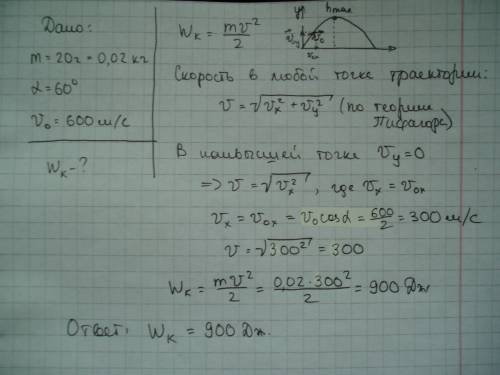 Дано:
m = 20г = 0,02 кг
α = 60°
v₀ = 600 м/с
Wк - ?
Wк = mv²/2
y hmax
v⃗y v⃗₀
Скорость в любой точке траектории:
v = √(vx² + vy²) (по теории
Пифагора)
В наивысшей точке vy = 0
=> v = √(vx²), где vx = v₀x
vx = v₀x = v₀cosα = 600/2 = 300 м/с
v = √(300²) = 300
Wк = mv²/2 = 0,02·300²/2 = 900 Дж
Ответ: Wк = 900 Дж.